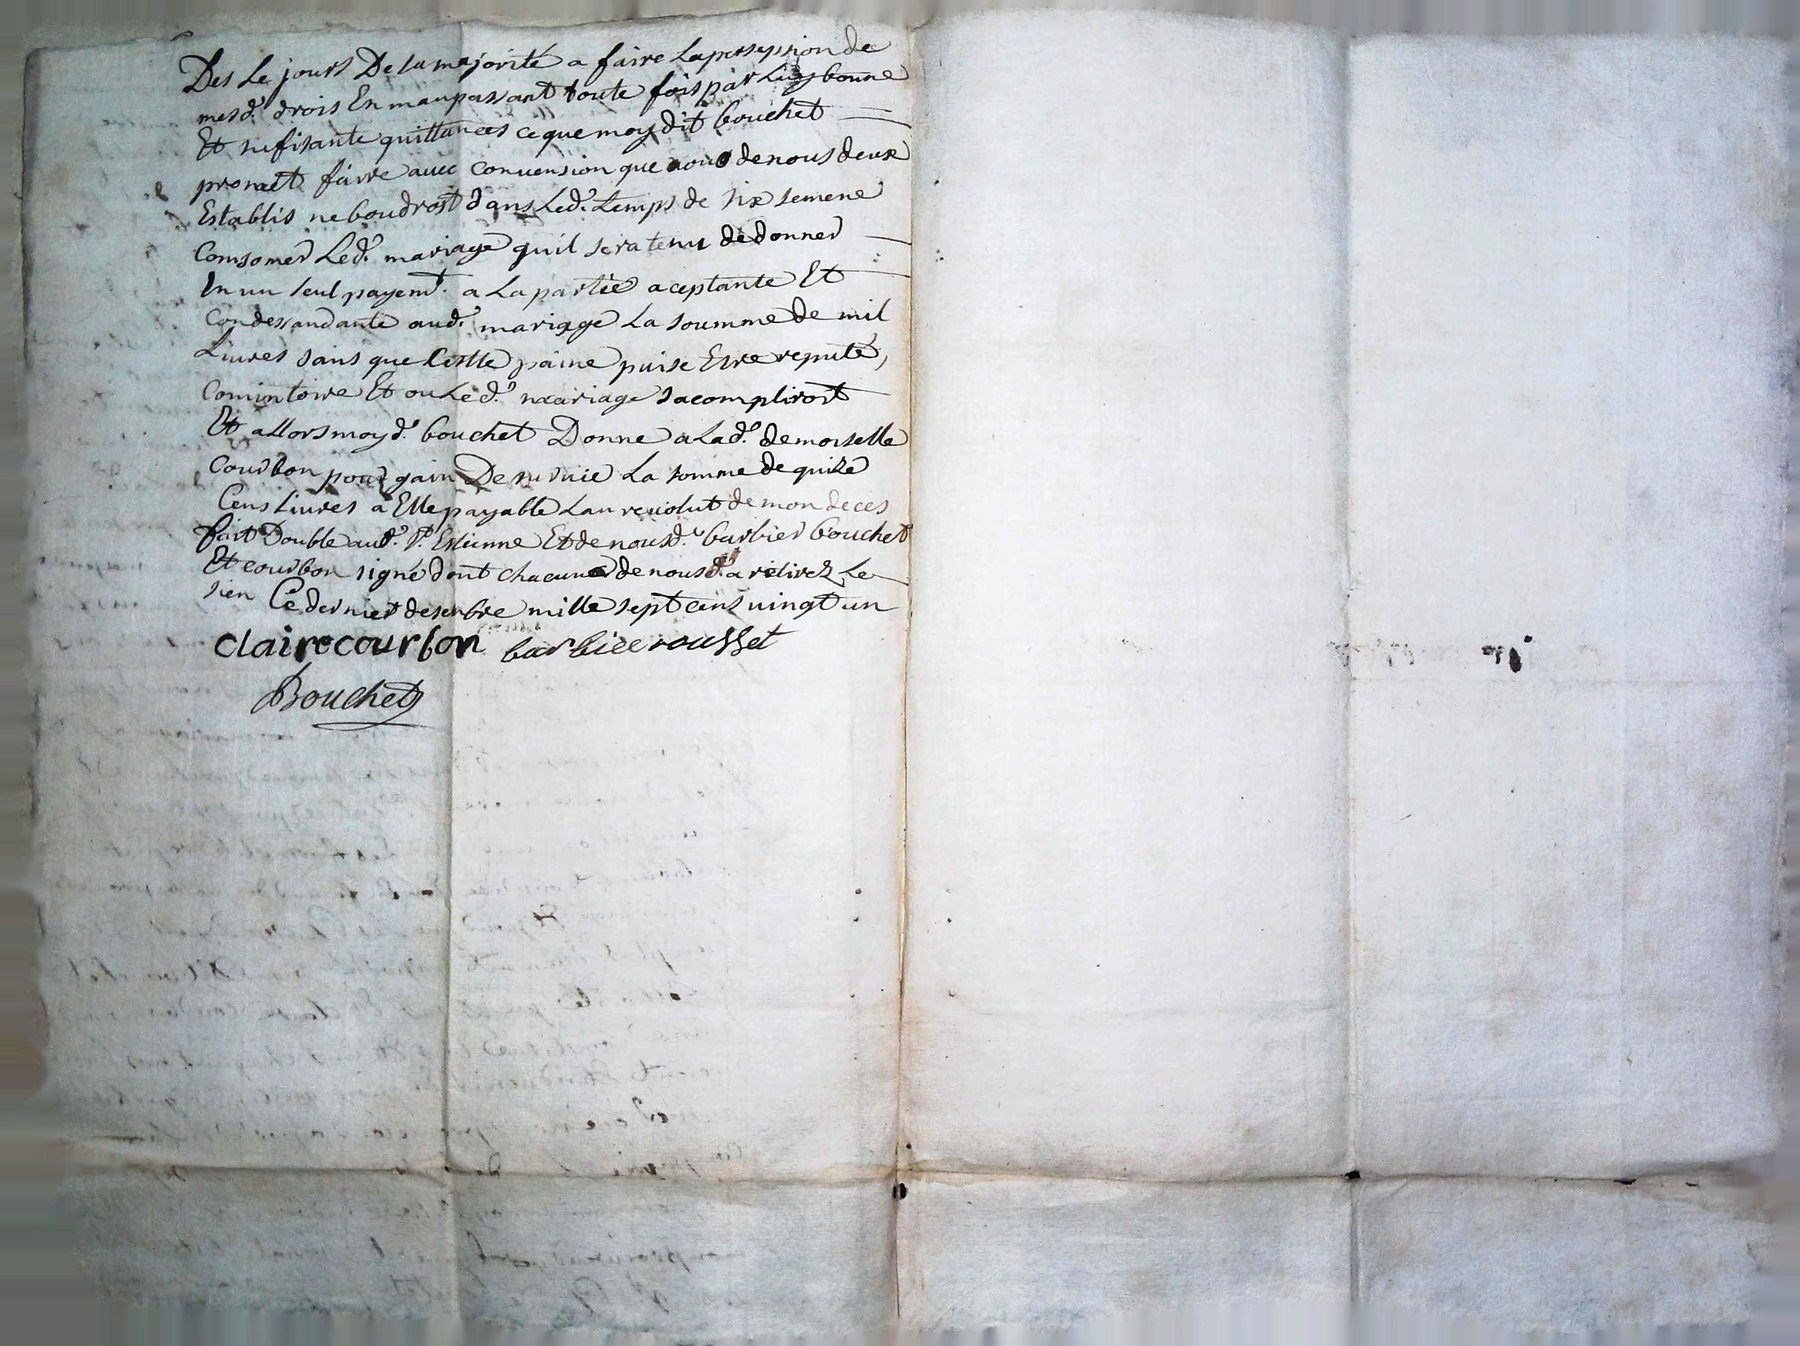 Des Le jours De la majorité a faire La persepsion de
mesd. drois En mau passant toute fois par Luy bonne
Et sufisante quittances ce que moy dit bouchet
promet faire avec convension que de nous deux
Establis ne boudroit dans Led. temps de six semene
Comsomer Led. mariage quil sera tenu de donner
En un seul payemt. a La partie aceptante Et
Condessandante aud. mariage La soumme de mil
Livres sans que Cestte paine puise Etre reputé
Comintoire Et ou Led. mariage sacompliroit
Et allors moyd. bouchet Donne a Lad. demoiselle
Courbon pour gain De survie La somme de quize
Cens Livres a Elle payable Lan revolut de mon deces
fait Double aud. St. Estienne Et de nousd. barbier bouchet
Et courbon signé dont chacun de nousd. a retirez Le
sien Ce dernier desenbre mille sept cens vingt un
claire courbon barbier rousset
Bouchet